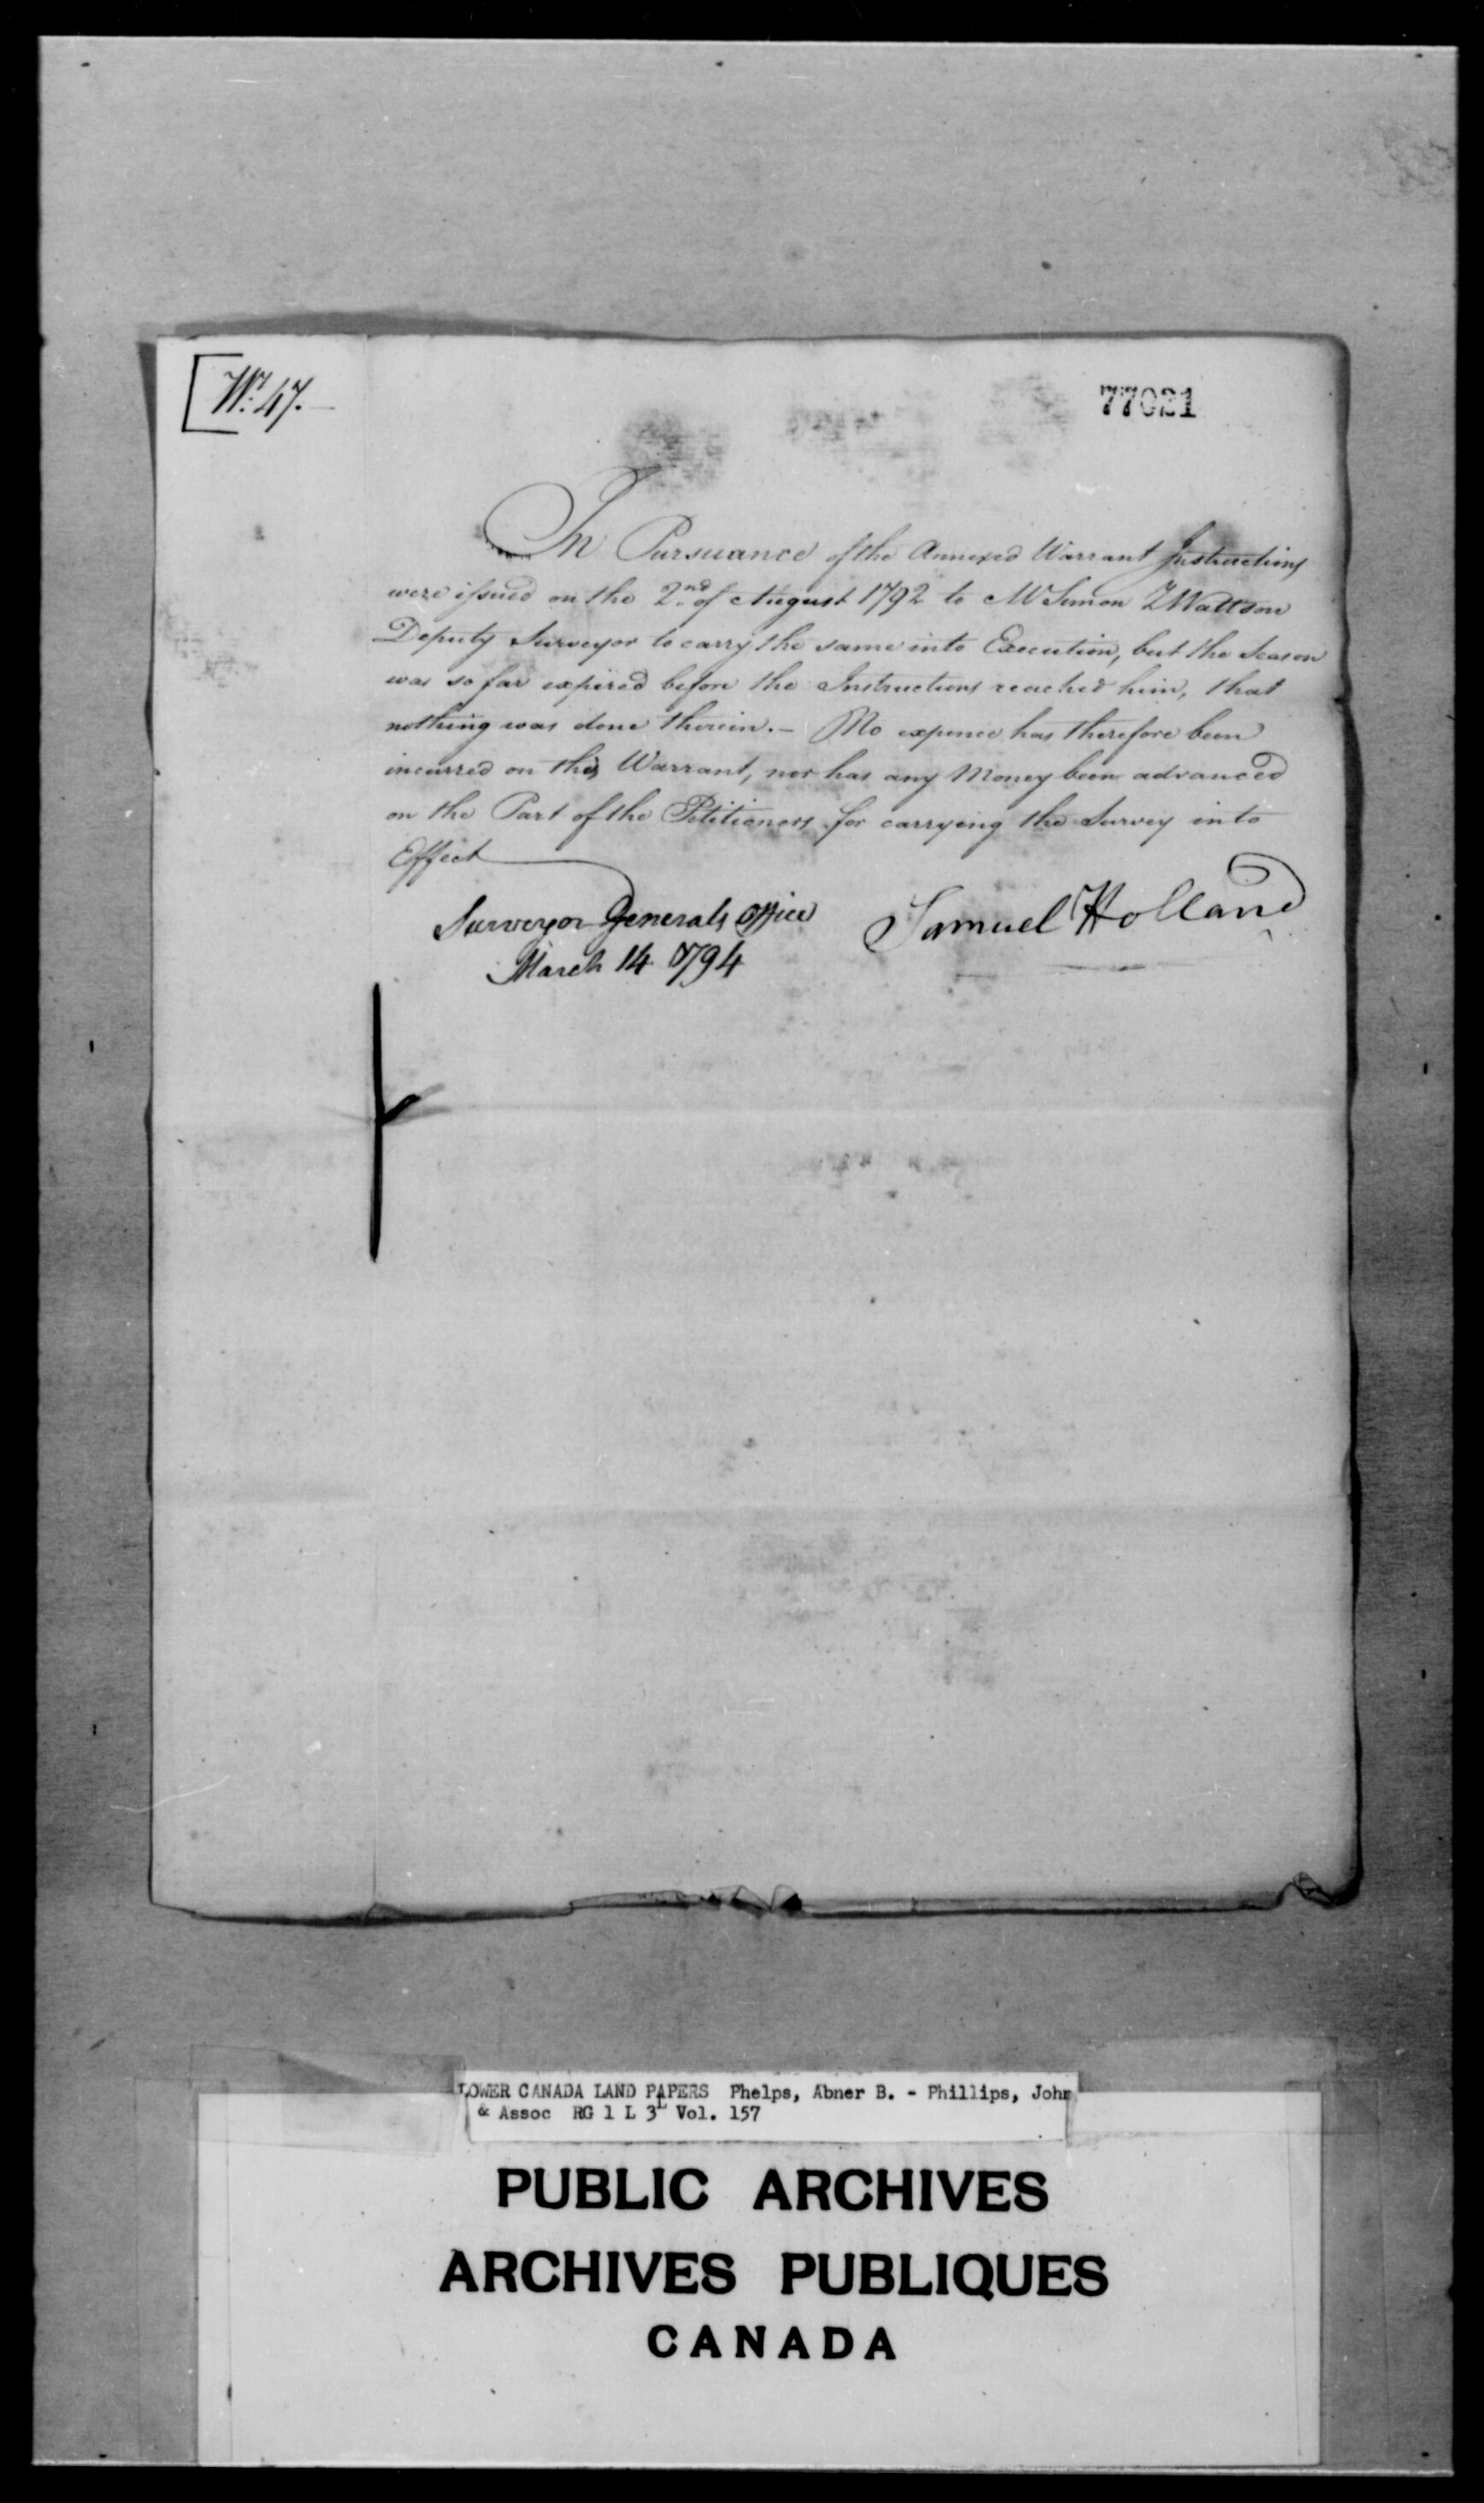 No. 47.
77021
In Pursuance of the Annexed Warrant Instructions
were issued on the 2nd. of August 1792 to Mr Simon Z Wattson
Deputy Surveyor to carry the same into Execution, but the Season
was so far expired before the Instructions reached him, that
nothing was done therein.- No expence has therefore been
incurred on this Warrant, nor has any Money been advanced
on the Part of the Petitioners for carrying the Survey into
Effect
Surveyor Generals Office
March 14 1794
Samuel Holland
LOWER CANADA LAND PAPERS Phelps, Abner B. - Phillips, John
& Assoc RG 1 L 3L Vol. 157
PUBLIC ARCHIVES
ARCHIVES PUBLIQUES
CANADA